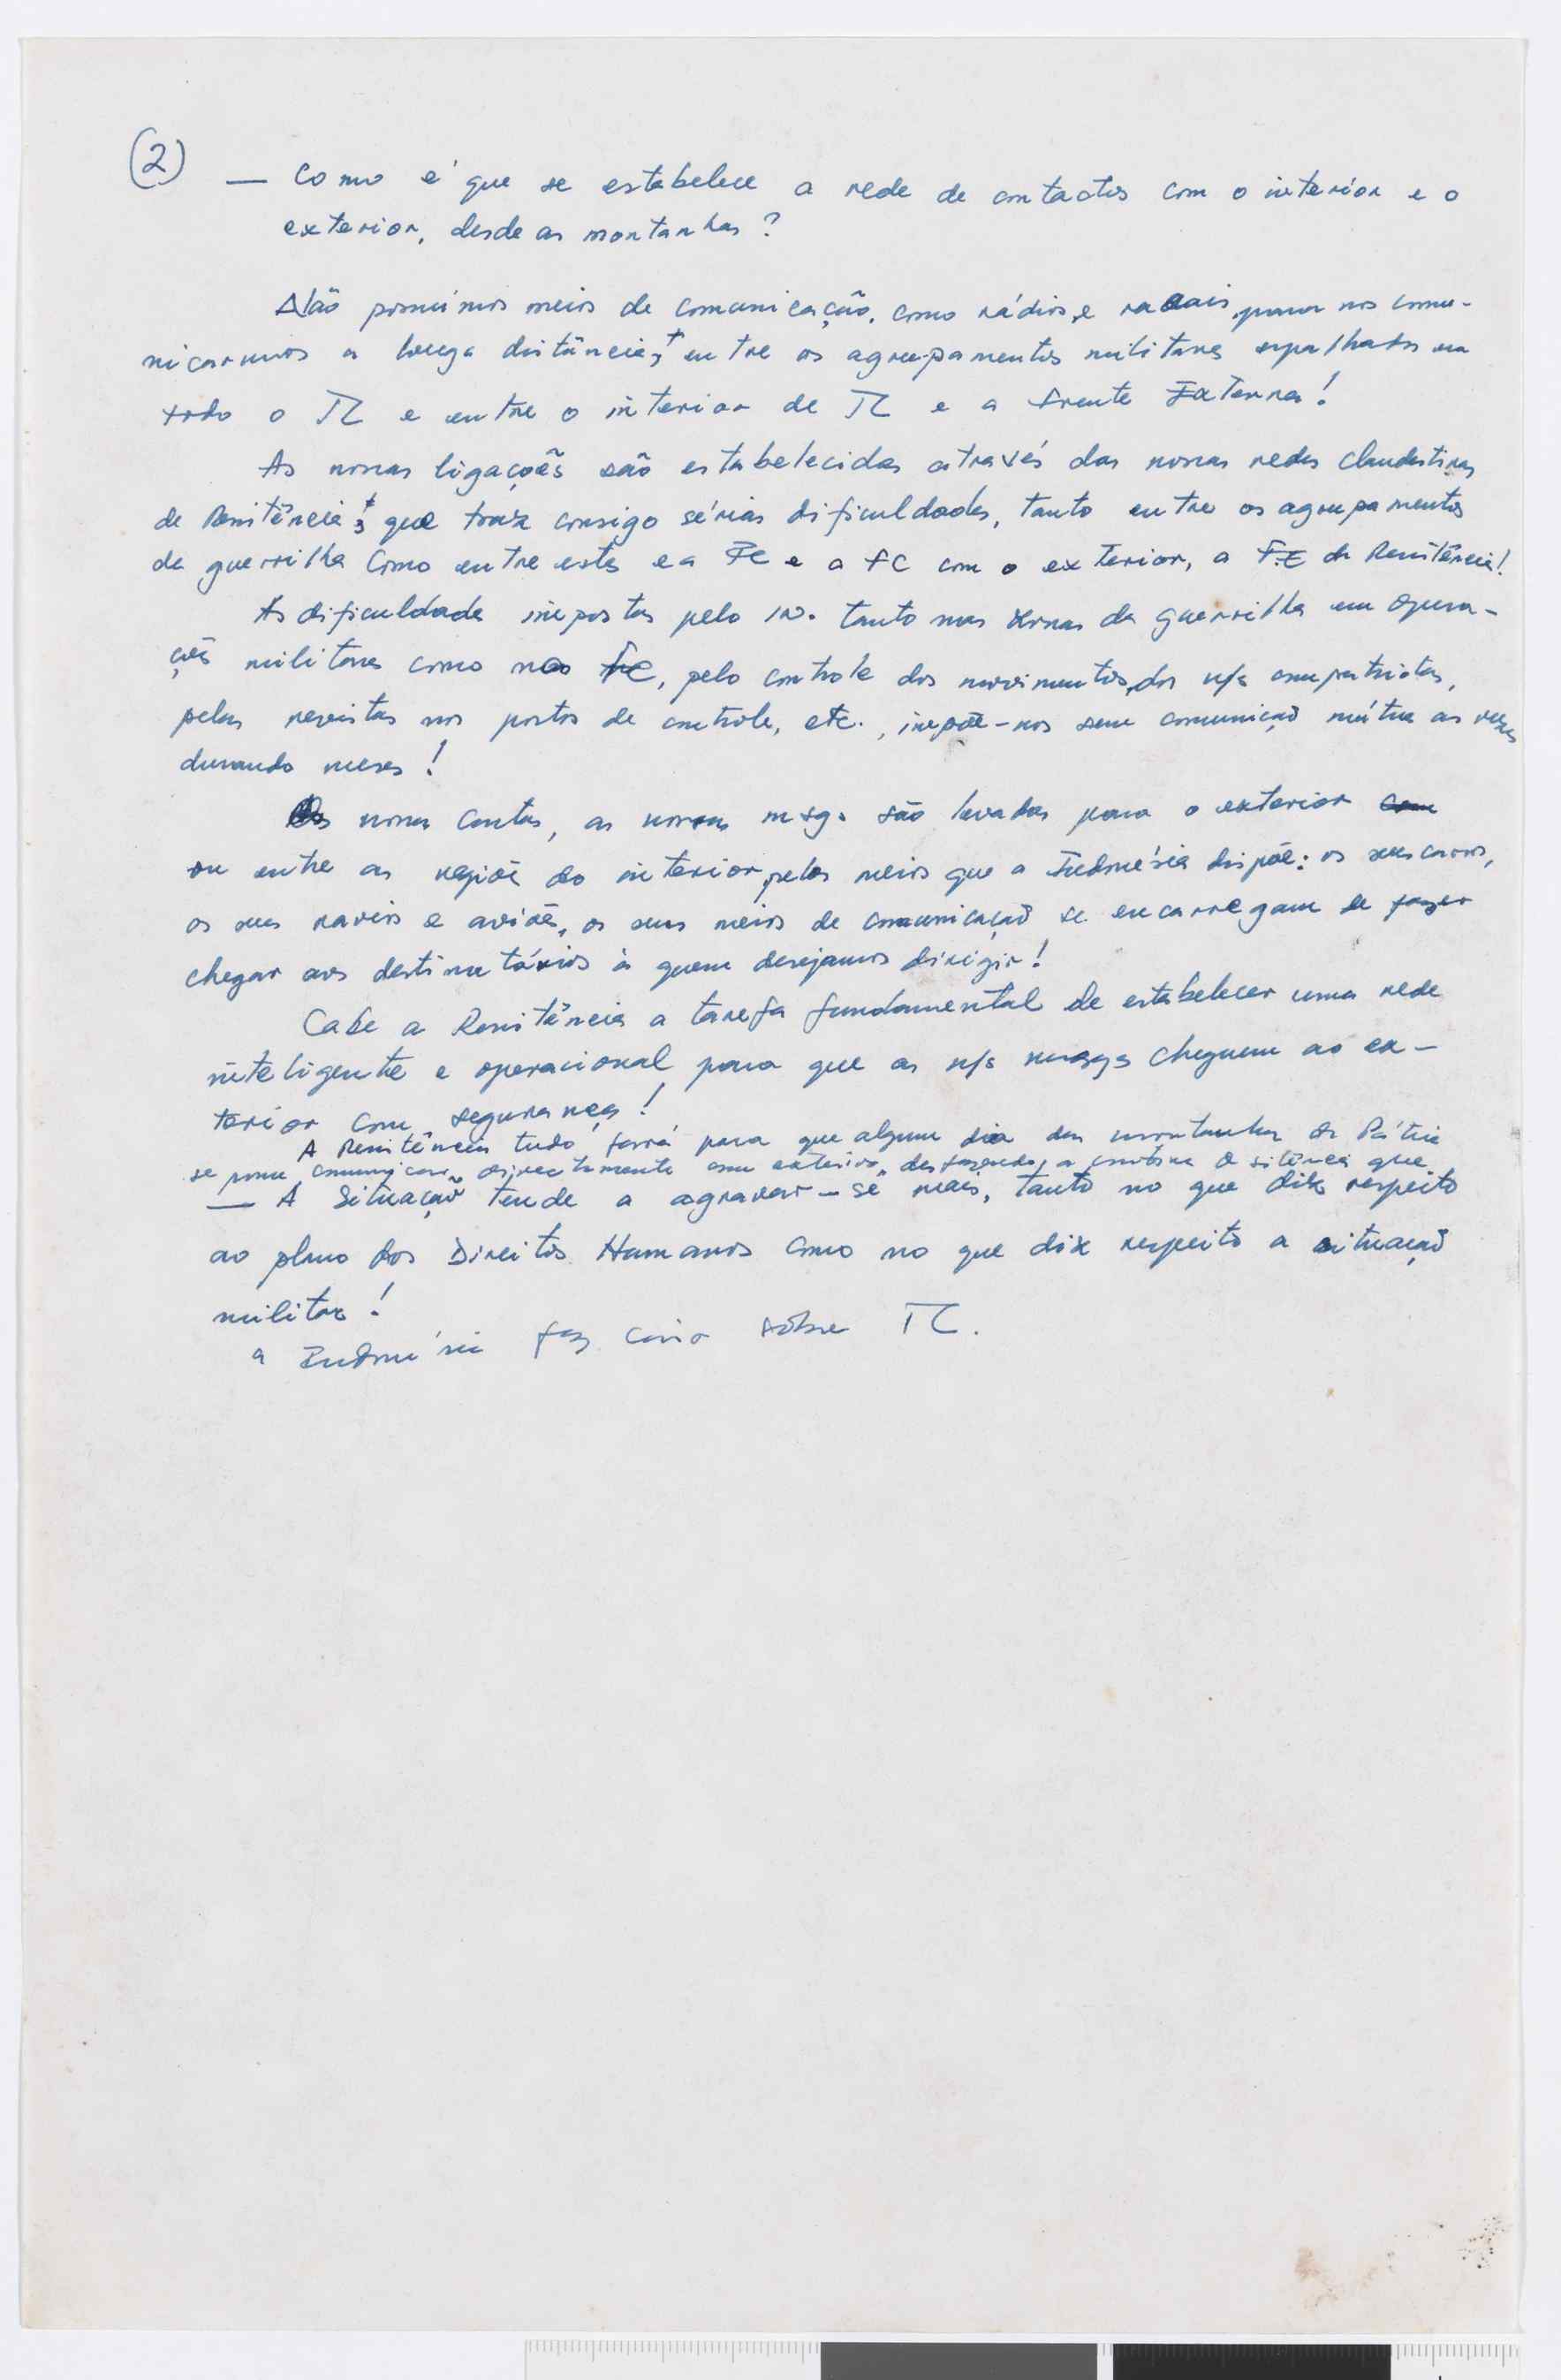 (2) — Como é que se estabelece a rede de contactos com o interior e o
exterior, desde as montanhas?
Não possuímos meios de comunicação, como rádios, e racais, para nos comu-
nicarmos a longa distância, entre os agrupamentos militares espalhados em
todo o TL e entre o interior de TL e a Frente Externa!
As nossas ligações são estabelecidas através das nossas redes clandestinas
de Resistência, que traz consigo sérias dificuldades, tanto entre os agrupamentos
de guerrilha como entre estes e a FC e a FC com o exterior, a F.E da Resistência!
As dificuldades impostas pelo in. tanto nas zonas da guerrilha em opera-
ções militares como na FC, pelo controle dos movimentos, dos n/s compatriotas,
pelas revistas nos postos de controle, etc., impõe-nos sem comunicação mútua as vezes
durando meses!
As nossas cartas, as nossas msgs são levadas para o exterior com
ou entre as regiões do interior, pelos meios que a Indonésia dispõe: os seus carros,
os seus navios e aviões, os seus meios de comunicação se encarregam de fazer
chegar aos destinatários à quem desejamos dirigir!
Cabe a Resistência a tarefa fundamental de estabelecer uma rede
inteligente e operacional para que as n/s msgs cheguem ao ex-
terior com segurança!
A Resistência tudo fará para que algum dia das montanhas da Pátria
se possa comunicar directamente com exterior, desfazendo, a cortina de silêncio que
— A Situação tende a agravar-se mais, tanto no que diz respeito
ao plano dos Direitos Humanos como no que diz respeito a situação
militar!
a Indonésia faz sobre TL.